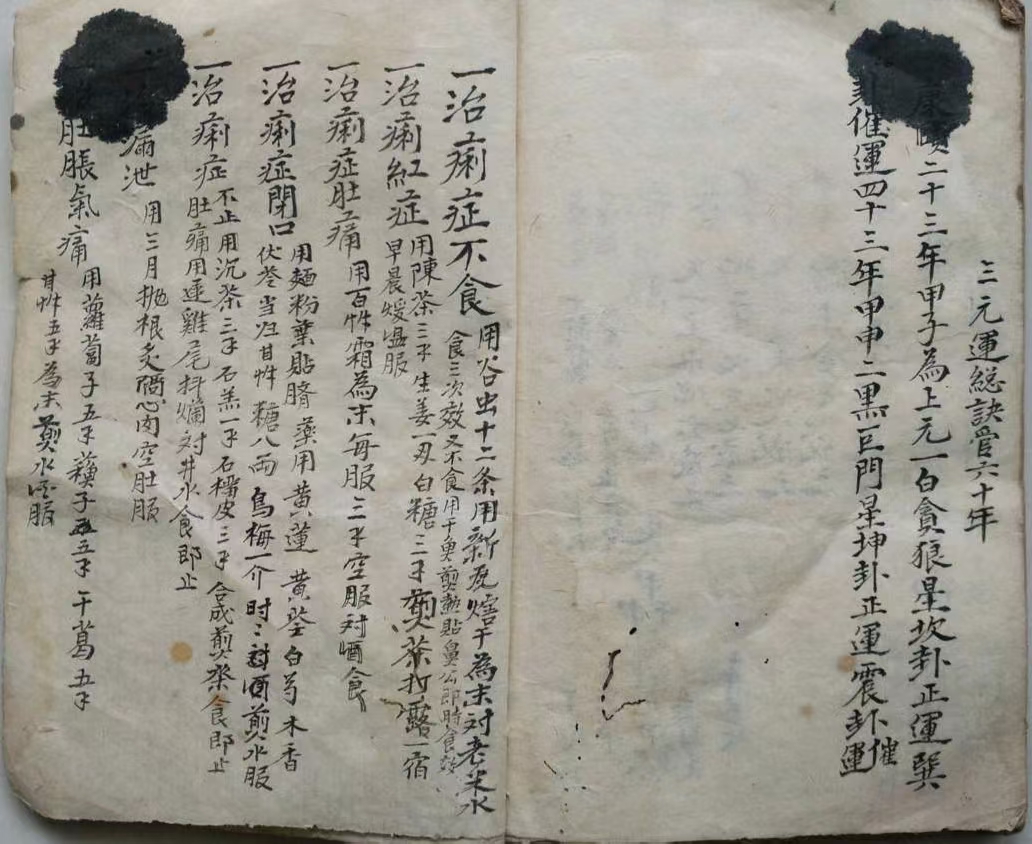 三元運総訣管六十年
康熙二十三年甲子為上元一白貪狼星坎卦正運巽
卦催運四十三年甲申二黑巨門星坤卦正運震卦催
運
一治痢症不食
用谷出十二条用新瓦焙干為末対老米水
食三次效又不食用干魚煎熱貼鼻公即時食好
一治痢紅症
用陳茶三子生姜一刄白糖三子煎茶打露一宿
早晨煖温服
一治痢症肚痛
用百艸霜為末每服三子空服対酒食
一治痢症閉口
用麵粉葉貼臍藥用黄蓮黄芩白芍木香
伏苓当归甘艸糖八両烏梅一介时〻対酒煎水服
一治痢症
不止用沉茶三子石羔一子石榴皮三子合成煎楽食即止
肚痛用連雞尾抖爛対井水食即止
漏泄
用三月抛根炙酒心肉空肚服
肚脹氣痛
用蘿蔔子五子蘓子五子干葛五子
甘艸五子為末煎水空服